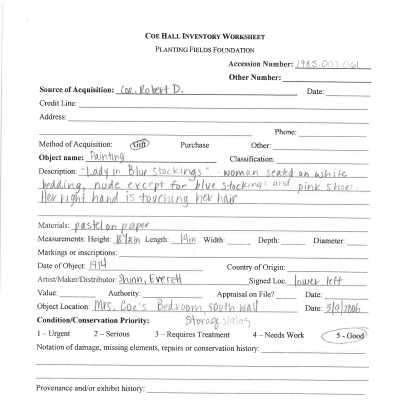 COE HALL INVENTORY WORKSHEET
PLANTING FIELDS FOUNDATION
Accession Number: 1983.003.061
Other Number:
Source of Acquisition: Coe, Robert D. Date:
Credit Line:
Address:
Phone:
Method of Acquisition: Gift Purchase Other:
Object name: Painting Classification:
Description: "Lady in Blue Stockings" - woman seated on white
bedding, nude except for blue stockings and pink shoes.
Her right hand is touching her hair
Materials: pastel on paper
Measurements: Height: Length: 14in Width: Depth: Diameter:
Markings or inscriptions:
Date of Object: 1914 Country of Origin:
Artist/Maker/Distributor: Shinn, Everett Signed Loc. lower left
Value: Authority: Appraisal on File? Date:
Object Location: Mrs. Coe's Bedroom, south wall Date:
Condition/Conservation Priority: Storage
1 – Urgent 2 – Serious 3 – Requires Treatment 4 – Needs Work 5 - Good
Notation of damage, missing elements, repairs or conservation history:
Provenance and/or exhibit history: